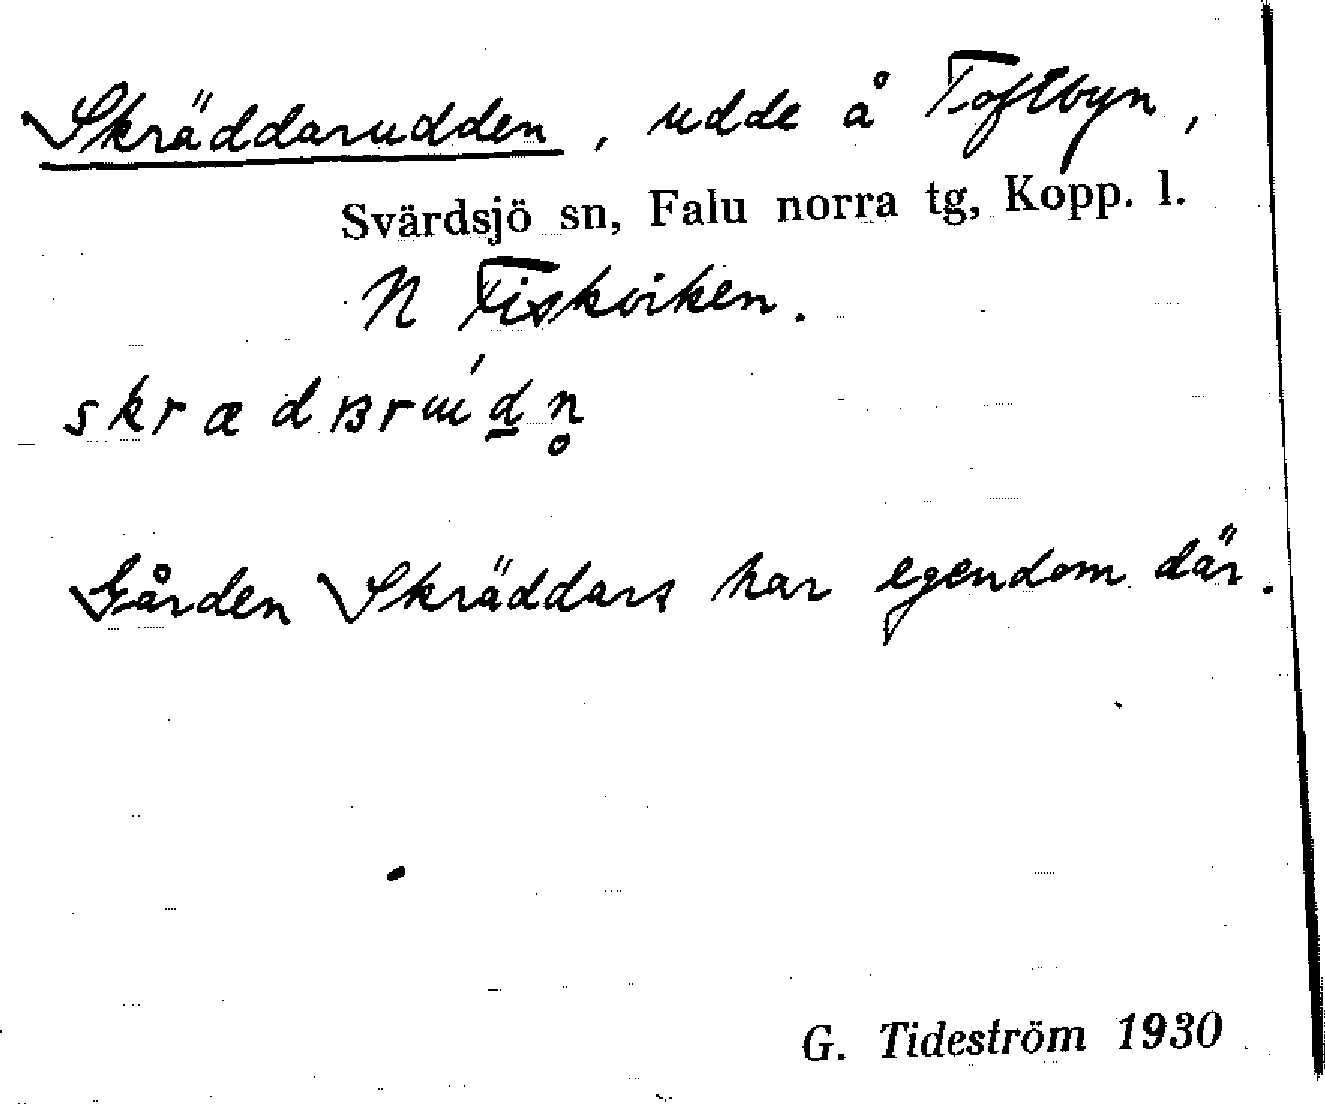 Skräddarudden, udde å Toftbyn,
Svärdsjö sn, Falu norra tg, Kopp. l.
N Fiskviken.
skrædʙrɯ́d̲n̥
Gården Skräddars har egendom där.
G. Tideström 1930